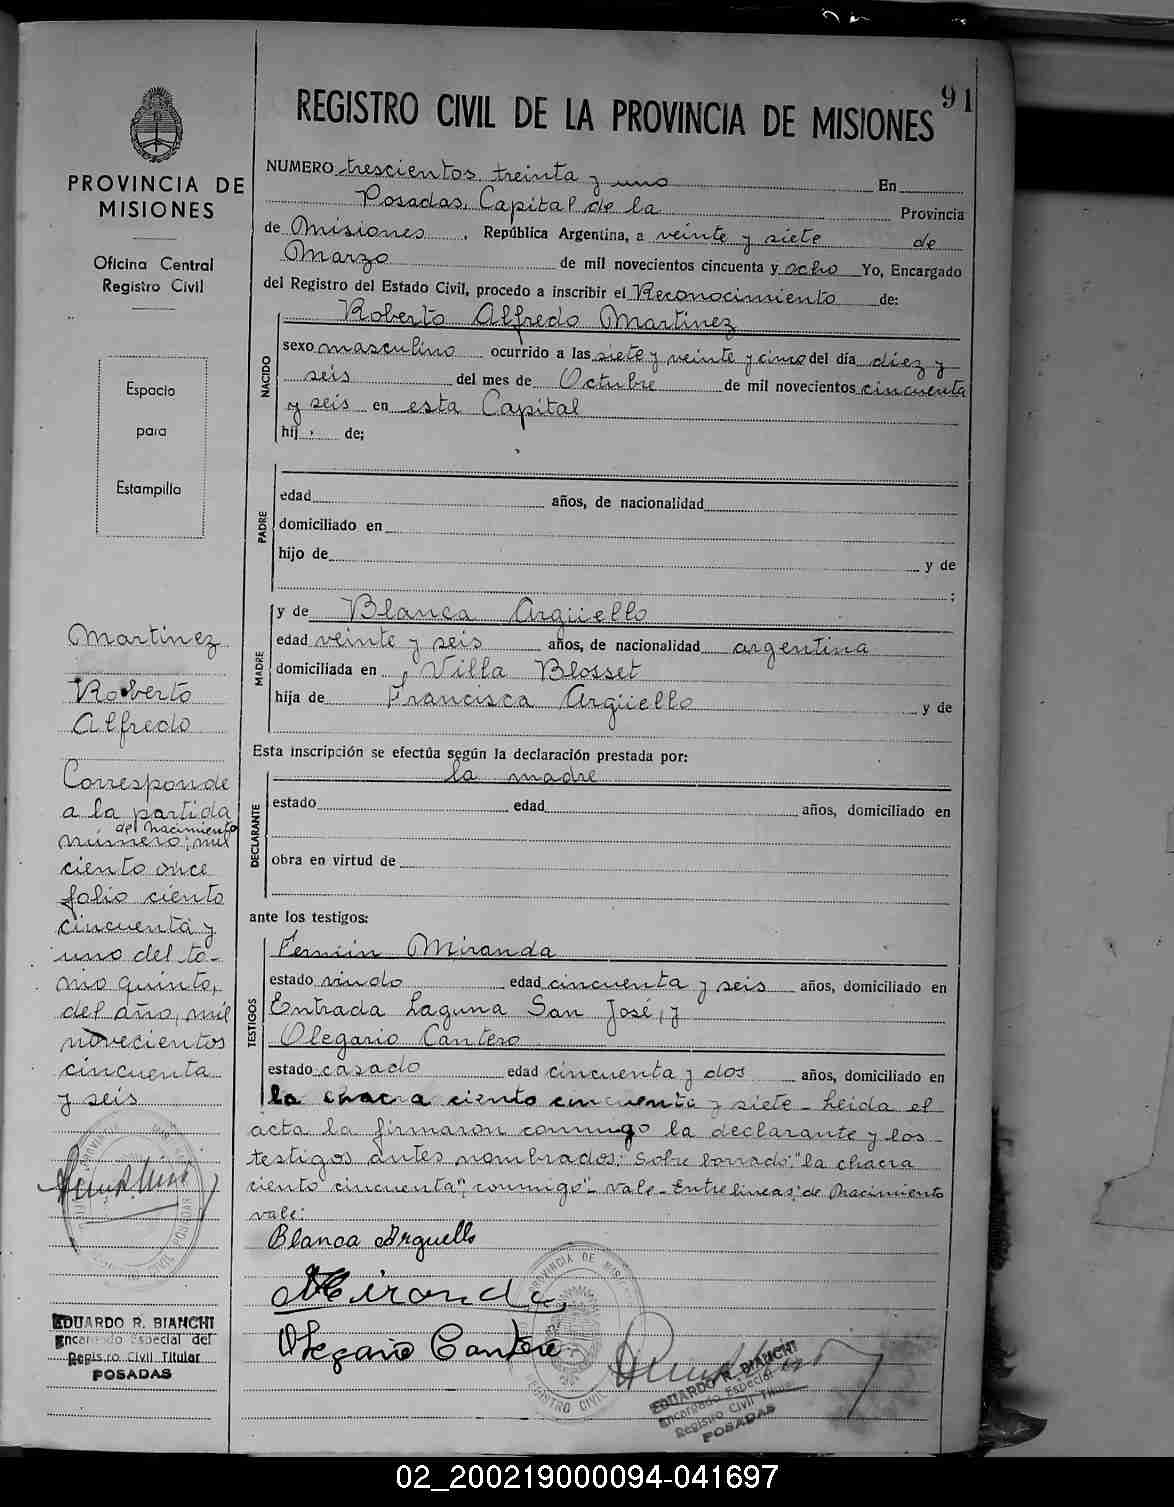 91
REGISTRO CIVIL DE LA PROVINCIA DE MISIONES
PROVINCIA DE
MISIONES
Oficina Central
Registro Civil
Espacio
para
Estampilla
NUMERO trescientos treinta y uno En
Posadas, Capital de la Provincia
de Misiones, República Argentina, a veinte y siete de
Marzo de mil novecientos cincuenta y ocho Yo, Encargado
del Registro del Estado Civil, procedo a inscribir el Reconocimiento de:
NACIDO
Roberto Alfredo Martinez
sexo masculino ocurrido a las siete y veinte y cinco del día diez y
seis del mes de Octubre de mil novecientos cincuenta
y seis en esta Capital
hij de:
PADRE
edad años, de nacionalidad
domiciliado en
hijo de y de
;
MADRE
y de Blanca Argüello
edad veinte y seis años, de nacionalidad argentina
domiciliada en , Villa Blosset
hija de Francisca Argüello y de
Esta inscripción se efectúa según la declaración prestada por:
DECLARANTE
la madre
estado edad años, domiciliado en
obra en virtud de
ante los testigos:
TESTIGOS
Fermín Miranda
estado viudo edad cincuenta y seis años, domiciliado en
Entrada Laguna San José, y
Olegario Cantero
estado casado edad cincuenta y dos años, domiciliado en
la chacra ciento cincuenta y siete - Leida el
acta la firmaron conmigo la declarante y los
testigos antes nombrados: Sobre borrado: "la chacra
ciento cincuenta"; conmigo" - vale - Entre lineas: de Nacimiento
vale:
Blanca Arguello
Miranda
Olegario Cantero
Martinez
Roberto
Alfredo
Corresponde
a la partida
de Nacimiento
número; mil
ciento once
folio ciento
cincuenta y
uno del to-
mo quinto,
del año, mil
novecientos
cincuenta
y seis
EDUARDO R. BIANCHI
Encargado Especial del
Registro Civil Titular
POSADAS
PROVINCIA DE
REGISTRO CIVIL
EDUARDO R. BIANCHI
Encargado Especial
Registro Civil Titular
POSADAS
02_200219000094-041697